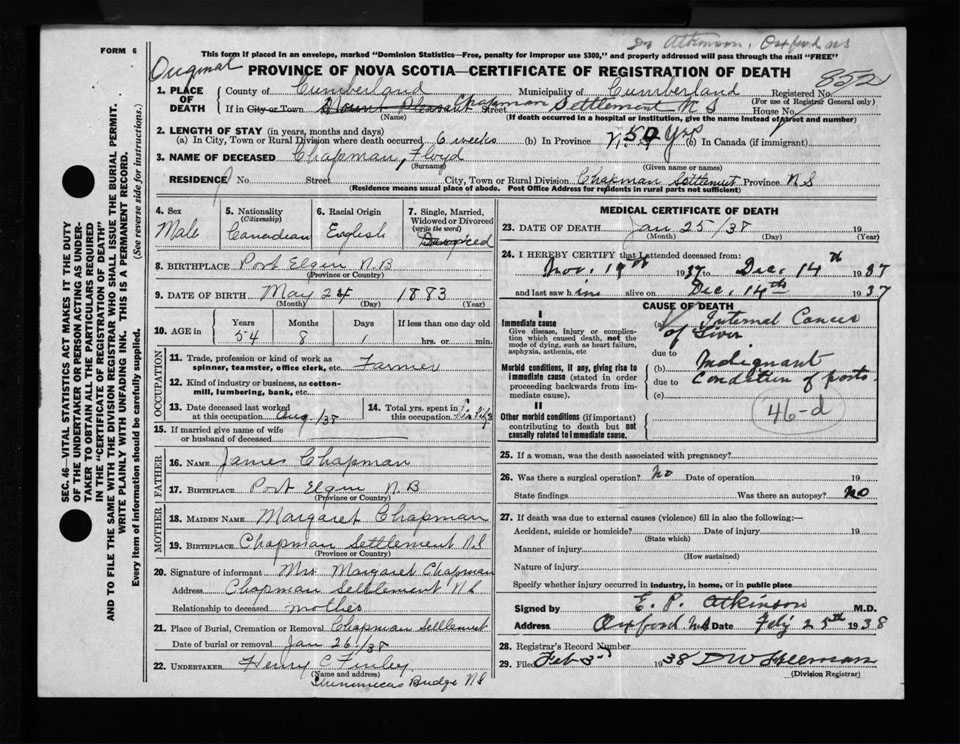 FORM 6
This form if placed in an envelope, marked "Dominion Statistics—Free, penalty for improper use $300," and properly addressed will pass through the mail "FREE"
Dr Atkinson, Oxford NS
Original
PROVINCE OF NOVA SCOTIA—CERTIFICATE OF REGISTRATION OF DEATH
852
1. PLACE OF DEATH County of Cumberland Municipality of Cumberland Registered No.
(For use of Registrar General only)
If in City or Town Mount Pleasant Chapman Settlement N S Street House No.
(Name) (If death occurred in a hospital or institution, give the name instead of street and number)
2. LENGTH OF STAY (in years, months and days)
(a) In City, Town or Rural Division where death occurred 6 weeks (b) In Province 50 Yrs (c) In Canada (if immigrant)
3. NAME OF DECEASED Chapman, Floyd
(Surname) (Given name or names)
RESIDENCE No. Street City, Town or Rural Division Chapman Settlement Province N S
(Residence means usual place of abode. Post Office Address for residents in rural parts not sufficient)
4. Sex Male
5. Nationality (Citizenship) Canadian
6. Racial Origin English
7. Single, Married, Widowed or Divorced (write the word)
8. BIRTHPLACE Port Elgin N.B
(Province or Country)
9. DATE OF BIRTH May 24 1883
(Month) (Day) (Year)
10. AGE in Years Months Days If less than one day old
54 8 1 hrs. or min.
OCCUPATION
11. Trade, profession or kind of work as spinner, teamster, office clerk, etc. Farmer
12. Kind of industry or business, as cotton-mill, lumbering, bank, etc.
13. Date deceased last worked at this occupation Aug. /38
14. Total yrs. spent in this occupation
15. If married give name of wife or husband of deceased
FATHER
16. NAME James Chapman
17. BIRTHPLACE Port Elgin N.B
(Province or Country)
MOTHER
18. MAIDEN NAME Margaret Chapman
19. BIRTHPLACE Chapman Settlement N.S
(Province or Country)
20. Signature of informant Mrs. Margaret Chapman
Address Chapman Settlement N S
Relationship to deceased mother
21. Place of Burial, Cremation or Removal Chapman Settlement
Date of burial or removal Jan 26 /38
22. UNDERTAKER Henry C Finley
(Name and address)
Bridge N S
MEDICAL CERTIFICATE OF DEATH
23. DATE OF DEATH Jan 25 /38 19
(Month) (Day) (Year)
24. I HEREBY CERTIFY that I attended deceased from:
Nov. 19th 1937 to Dec. 14th 1937
and last saw him alive on Dec. 14th 1937
CAUSE OF DEATH
I
Immediate cause
Give disease, injury or complication which caused death, not the mode of dying, such as heart failure, asphyxia, asthenia, etc
(a) Internal Cancer of Liver
due to
Morbid conditions, if any, giving rise to immediate cause (stated in order proceeding backwards from immediate cause).
(b) Malignant
due to Condition of
(c)
46-d
II
Other morbid conditions (if important) contributing to death but not causally related to immediate cause.
25. If a woman, was the death associated with pregnancy?
26. Was there a surgical operation? No Date of operation 19
State findings Was there an autopsy? No
27. If death was due to external causes (violence) fill in also the following:—
Accident, suicide or homicide? Date of injury 19
(State which)
Manner of injury
(How sustained)
Nature of injury
Specify whether injury occurred in industry, in home, or in public place
Signed by E. P. Atkinson M.D.
Address Oxford N.S Date 25th 1938
28. Registrar's Record Number
29. Filed Feb 3rd 1938 D W Freeman
(Division Registrar)
SEC. 46—VITAL STATISTICS ACT MAKES IT THE DUTY
OF THE UNDERTAKER OR PERSON ACTING AS UNDER-
TAKER TO OBTAIN ALL THE PARTICULARS REQUIRED
IN THE "CERTIFICATE OF REGISTRATION OF DEATH"
AND TO FILE THE SAME WITH THE DIVISION REGISTRAR WHO SHALL ISSUE THE BURIAL PERMIT.
WRITE PLAINLY WITH UNFADING INK. THIS IS A PERMANENT RECORD.
Every item of information should be carefully supplied. (See reverse side for instructions.)